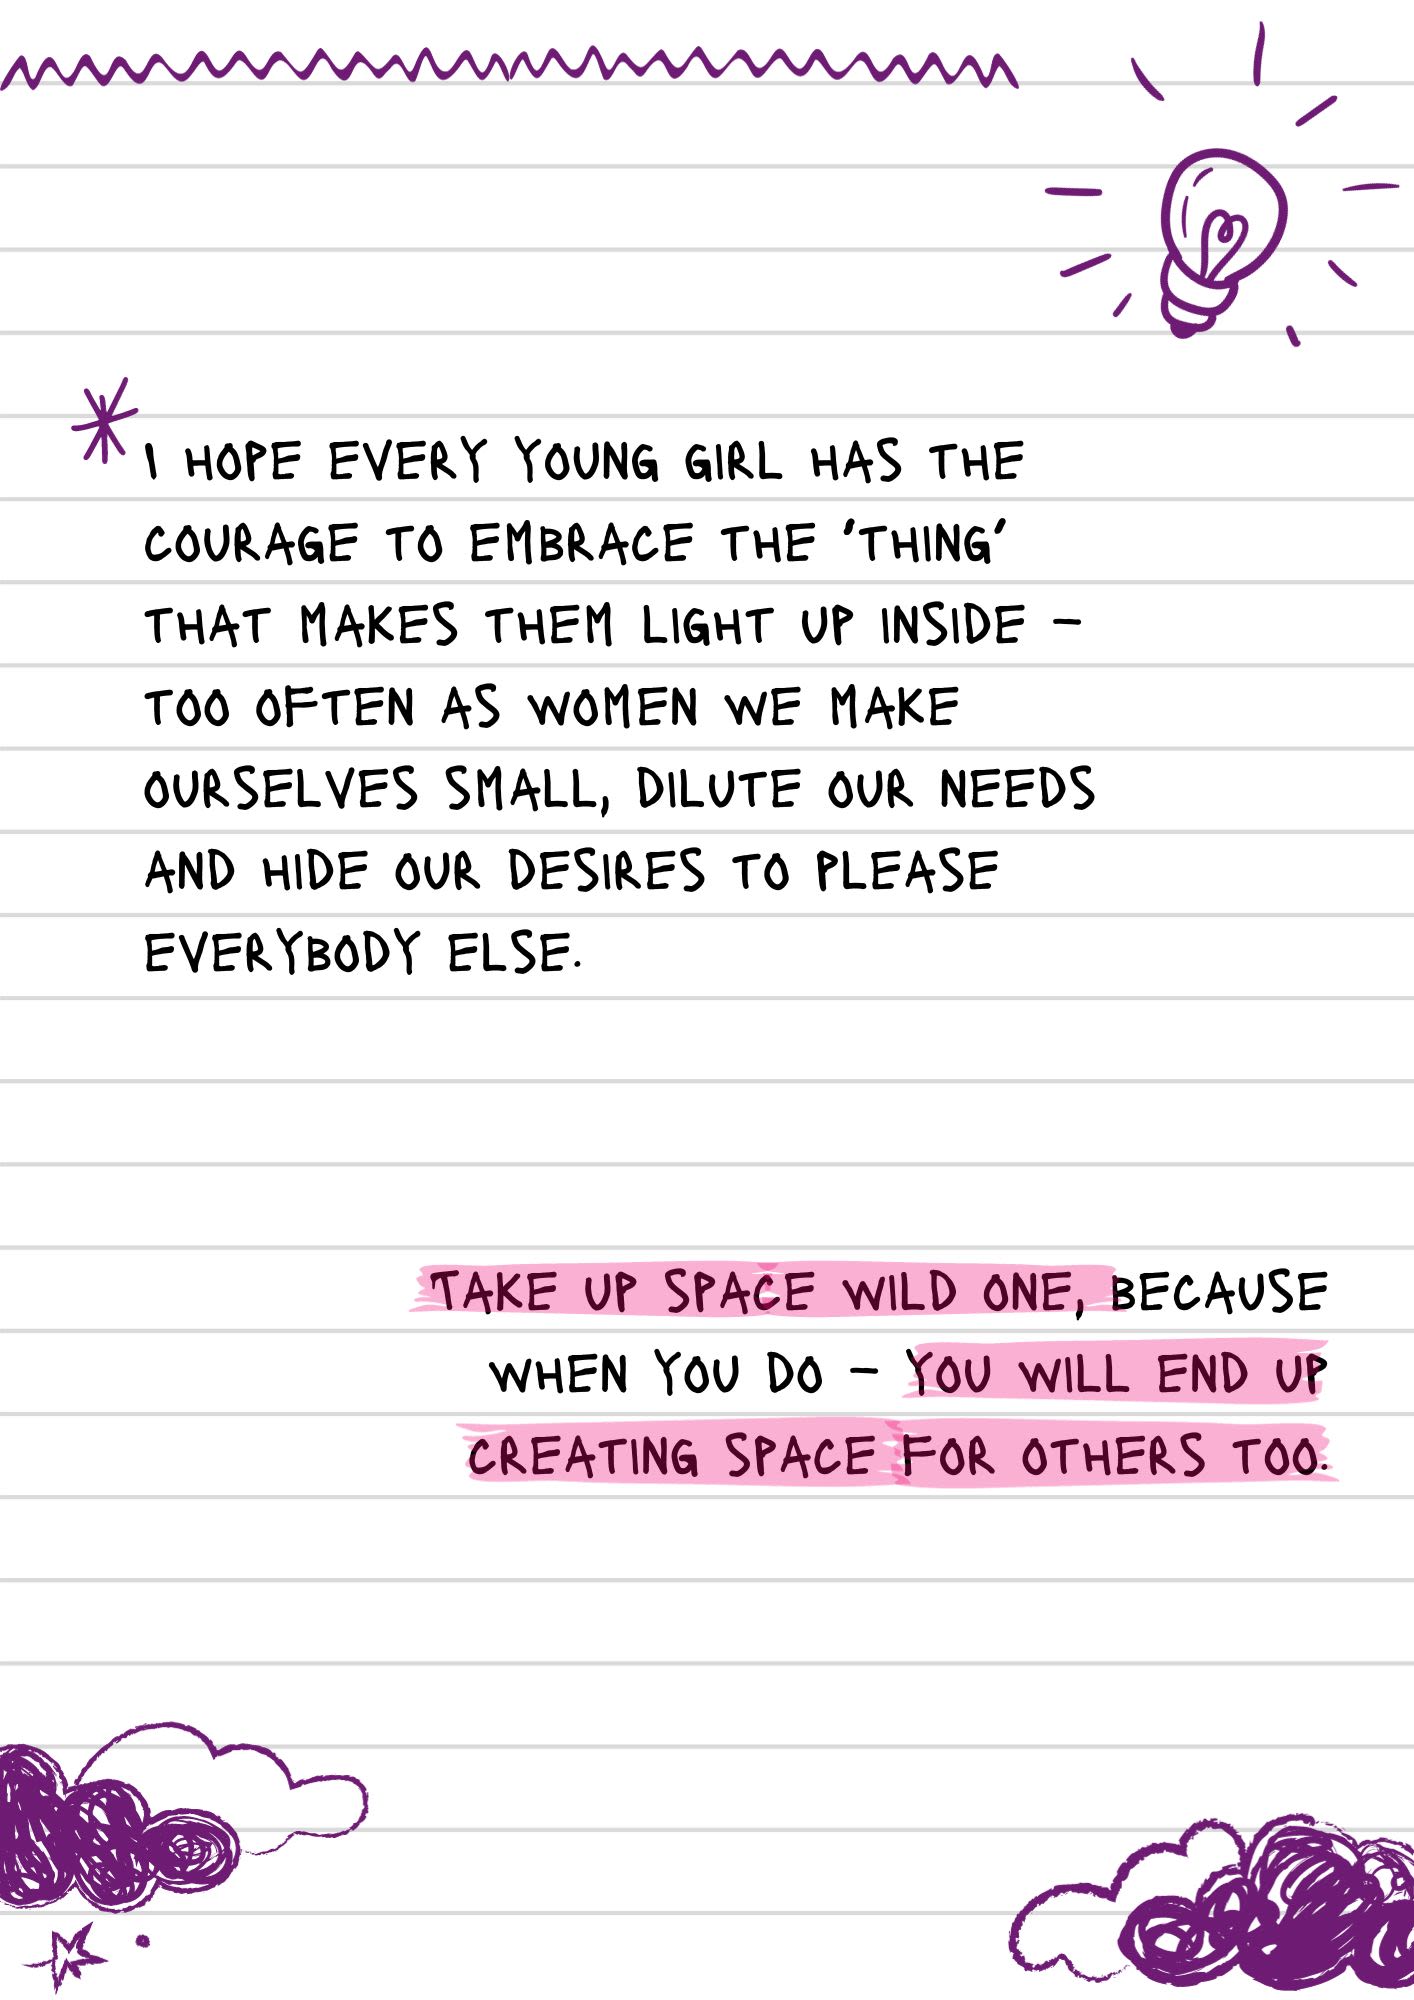 I HOPE EVERY YOUNG GIRL HAS THE
COURAGE TO EMBRACE THE 'THING'
THAT MAKES THEM LIGHT UP INSIDE -
TOO OFTEN AS WOMEN WE MAKE
OURSELVES SMALL, DILUTE OUR NEEDS
AND HIDE OUR DESIRES TO PLEASE
EVERYBODY ELSE.
TAKE UP SPACE WILD ONE, BECAUSE
WHEN YOU DO - YOU WILL END UP
CREATING SPACE FOR OTHERS TOO.